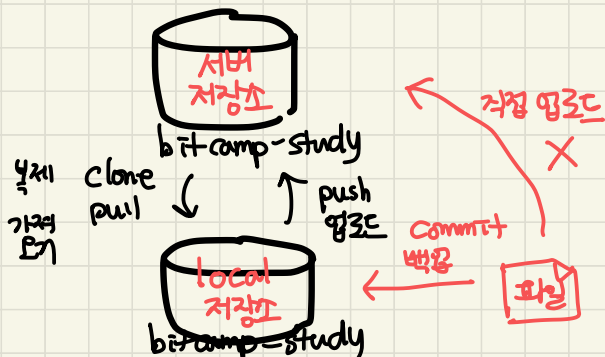 서버
저장소
bitcamp-study
직접 업로드
복제
clone
가져
오기
pull
push
업로드
commit
백업
local
저장소
파일
bitcamp-study